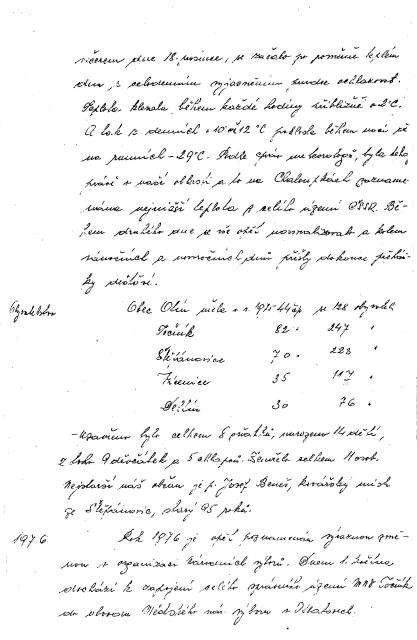 večerem dne 18. prosince, se začalo po poměrně teplém
dnu, s celodenním vyjasněním prudce ochlazovat.
Teplota klesala během každé hodiny přibližně o 2°C.
A tak z denních +10 až 12°C poklesla během noci až
na ranních -29°C. Podle zpráv meteorologů, byla tato
právě v naší oblasti a to na Chaloupkách zazname-
nána nejnižší teplota z celého území ČSSR. Bě-
hem druhého dne se vše opět normalizovalo a kolem
vánočních a novoročních dnů přišly dokonce přeháň-
ky dešťové.
Obyvatelstvo Obec Olín měla v r. 1975 - 44 čp. se 128 obyvateli
Točník 82 " 247 "
Štěpánovice 70 " 223 "
Křenice 35 117 "
30 76 "
- Uzavřeno bylo celkem 8 sňatků, narozeno 14 dětí,
z toho 9 děvčátek a 5 chlapců. Zemřelo celkem 11 osob.
Nejstarší náš občan je p. Josef Beneš, kovářský mistr
ze Štěpánovic, starý 95 roků.
1976 Rok 1976 je opět poznamenán výraznou změ-
nou v organizaci národních výborů. Dnem 1. 
dochází k zapojení celého správního území MNV Točník
do obvodu Městského nár. výboru v Klatovech.